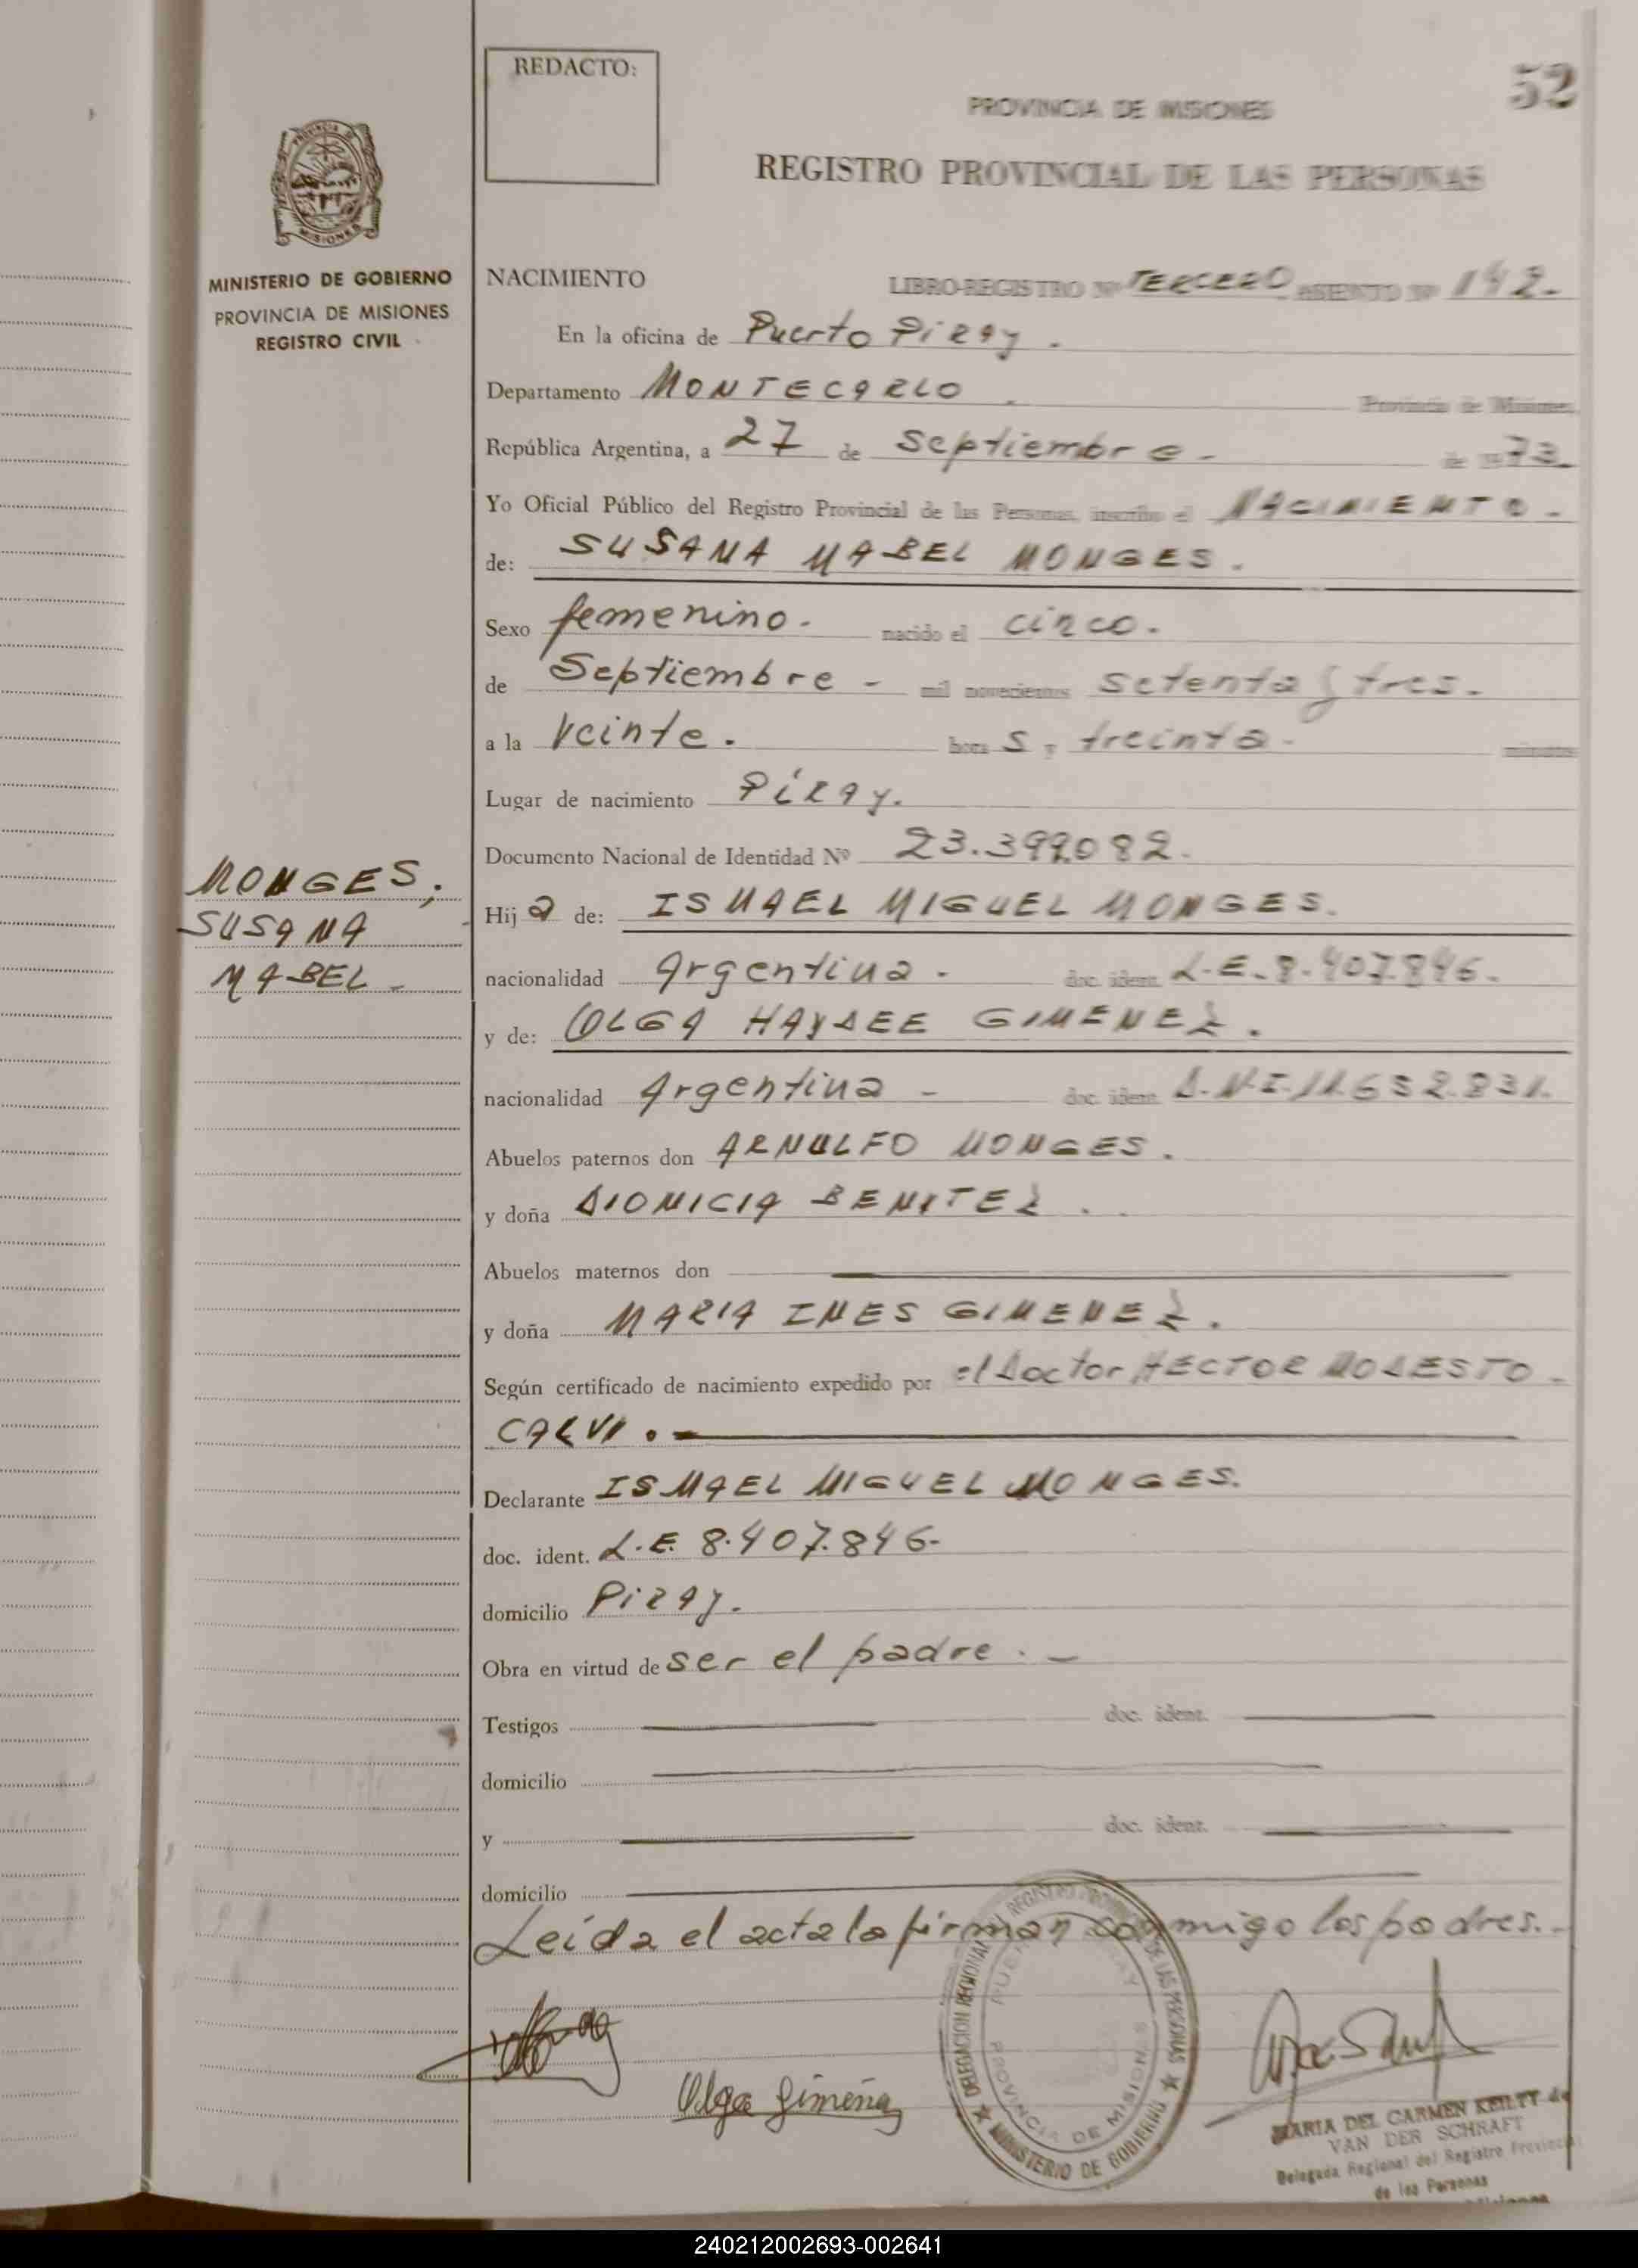 REDACTO:
52
PROVINCIA DE MISIONES
REGISTRO PROVINCIAL DE LAS PERSONAS
PROVINCIA DE
MISIONES
MINISTERIO DE GOBIERNO
PROVINCIA DE MISIONES
REGISTRO CIVIL
NACIMIENTO LIBRO-REGISTRO Nº TERCERO ASIENTO Nº 142.-
En la oficina de Puerto Piray.
Departamento MONTECARLO. Provincia de Misiones,
República Argentina, a 27 de Septiembre - de 1973.
Yo Oficial Público del Registro Provincial de las Personas, inscribo el NACIMIENTO -
de: SUSANA MABEL MONGES.
Sexo femenino. nacido el cinco.
de Septiembre - mil novecientos setenta y tres.
a la Veinte. hora s y treinta - minutos
Lugar de nacimiento Piray.
Documento Nacional de Identidad Nº 23.399.082.
MONGES,
SUSANA
MABEL -
Hij a de: ISMAEL MIGUEL MONGES.
nacionalidad Argentina. doc. ident. L.E. 8.407.846.
y de: OLGA HAYDEE GIMENEZ.
nacionalidad Argentina - doc. ident. D.N.I. 11.632.831.
Abuelos paternos don ARNULFO MONGES.
y doña DIONICIA BENITEZ.
Abuelos maternos don
y doña MARIA INES GIMENEZ.
Según certificado de nacimiento expedido por el Doctor HECTOR MODESTO -
CALVI. -
Declarante ISMAEL MIGUEL MONGES.
doc. ident. L.E. 8.407.846-
domicilio Piray.
Obra en virtud de ser el padre. -
Testigos doc. ident.
domicilio
y doc. ident.
domicilio
Leída el acta la firman conmigo los padres. -
Olga Gimenez
DELEGACION REGIONAL REGISTRO PROVINCIAL DE LAS PERSONAS
MINISTERIO DE GOBIERNO
PUERTO PIRAY
PROVINCIA DE MISIONES
MARIA DEL CARMEN KEILTY de
VAN DER SCHRAFT
Delegada Regional del Registro Provincial
de las Personas
Misiones
240212002693-002641